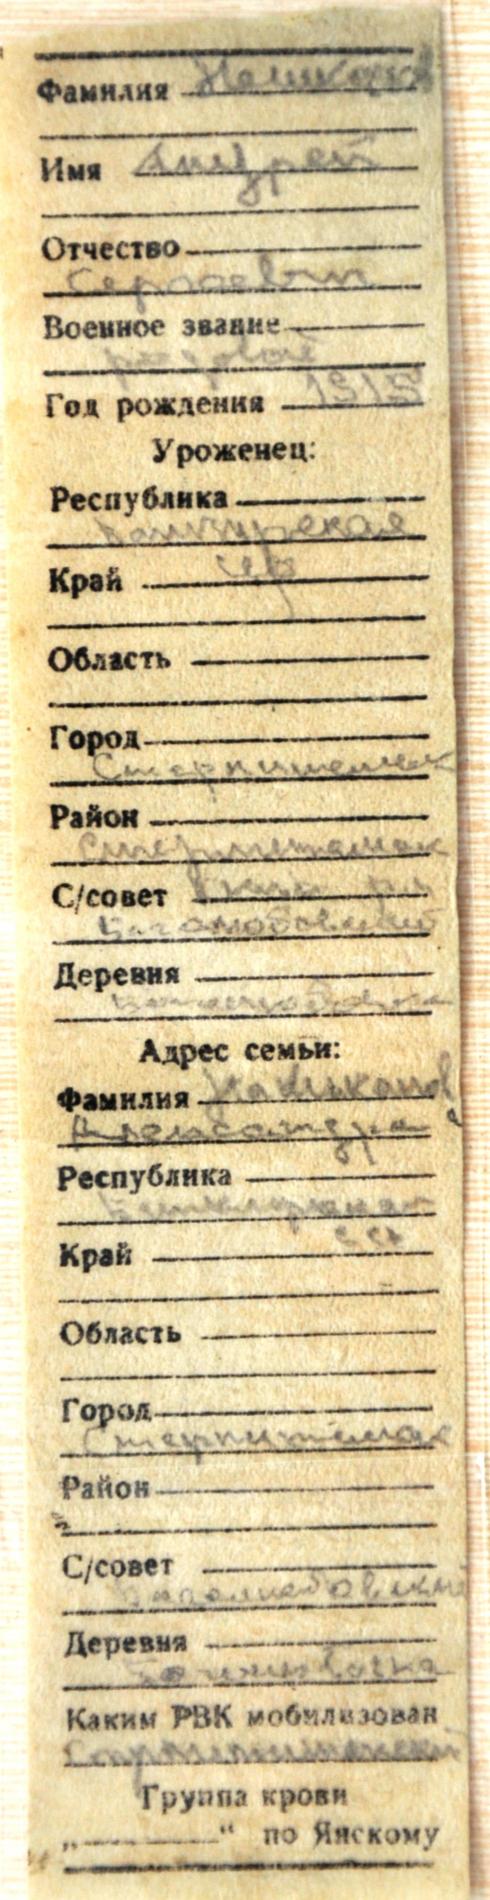 Фамилия
Имя Андрей
Отчество
Сергеевич
Военное звание
рядовой
Год рождения 1915
Уроженец:
Республика
Башкирская
Край
Область
Город
Стерлитамак
Район
Стерлитамак
С/совет
Деревня
Адрес семьи:
Фамилия
Александра
Республика
Башкирская
Край
Область
Город
Стерлитамак
Район
С/совет
Деревня
Каким РВК мобилизован
Стерлитамакский
Группа крови
„ “ по Янскому